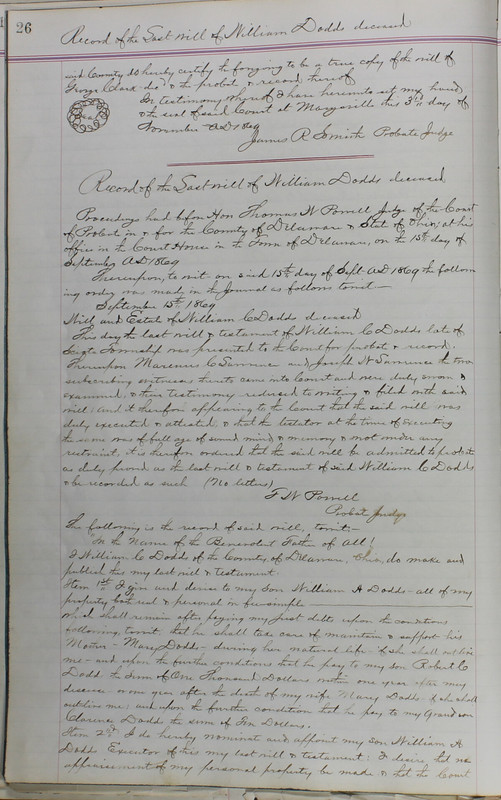 26
Record of the Last will of William Dodds deceased
and County do hereby certify the forgoing to be a true copy of the will of
George Clark decd & the probate & record thereof
In testimony whereof I have hereunto set my hand
& the seal of said Court at Marysville this 3rd day of
November AD 1869
James R Smith Probate Judge
Record of the Last will of William Dodds deceased
Proceedings had before Hon Thomas W Powell Judge of the Court
of Probate in & for the County of Delaware & State of Ohio, at his
office in the Court House in the Town of Delaware, on the 15th day of
September AD 1869
Thereupon, to wit on said 15th day of Sept AD 1869 the follow
ing order was made in the Journal as follows towit—
September 15th 1869
Will and Estate of William C Dodds deceased
This day the last will & testament of William C Dodds late of
Township was presented to the Court for probate & record.
Thereupon Marenus C Lawrence and Joseph N Lawrence the two
subscribing witnesses thereto came into Court and were duly sworn &
examined, & their testimony reduced to writing & filed with said
will: and it therefore appearing to the Court that the said will was
duly executed & attested, & that the testator at the time of executing
the same was of full age of sound mind & memory & not under any
restraint, it is therefore ordered that the said will be admitted to probate
as duly proved as the last will & testament of said William C Dodds
& be recorded as such (No letters)
T W Powell
Probate Judge
The following is the record of said will, towit:—
"In the Name of the Benevolent Father of All!
I William C Dodds of the County of Delaware, Ohio, do make and
publish this my last will & testament.
Item 1st I give and devise to my Son William A Dodds - all of my
property both real & personal in fee simple
which shall remain after paying my Just debts upon the conditions
following, towit. that he shall take care of maintain & support his
Mother - Mary Dodds - during her natural life - if she shall outlive
me - and upon the further conditions that he pay to my son Robert C
Dodds the Sum of One Thousand Dollars within one year after my
decease or one year after the death of my wife Mary Dodds if she shall
outlive me; and upon the further condition that he pay to my Grand son
Clarence Dodds the sum of Dollars.
Item 2nd I do hereby nominate and appoint my son William A
Dodds Executor of this my last will & testament: I desire that no
appraisement of my personal property be made & that the Court